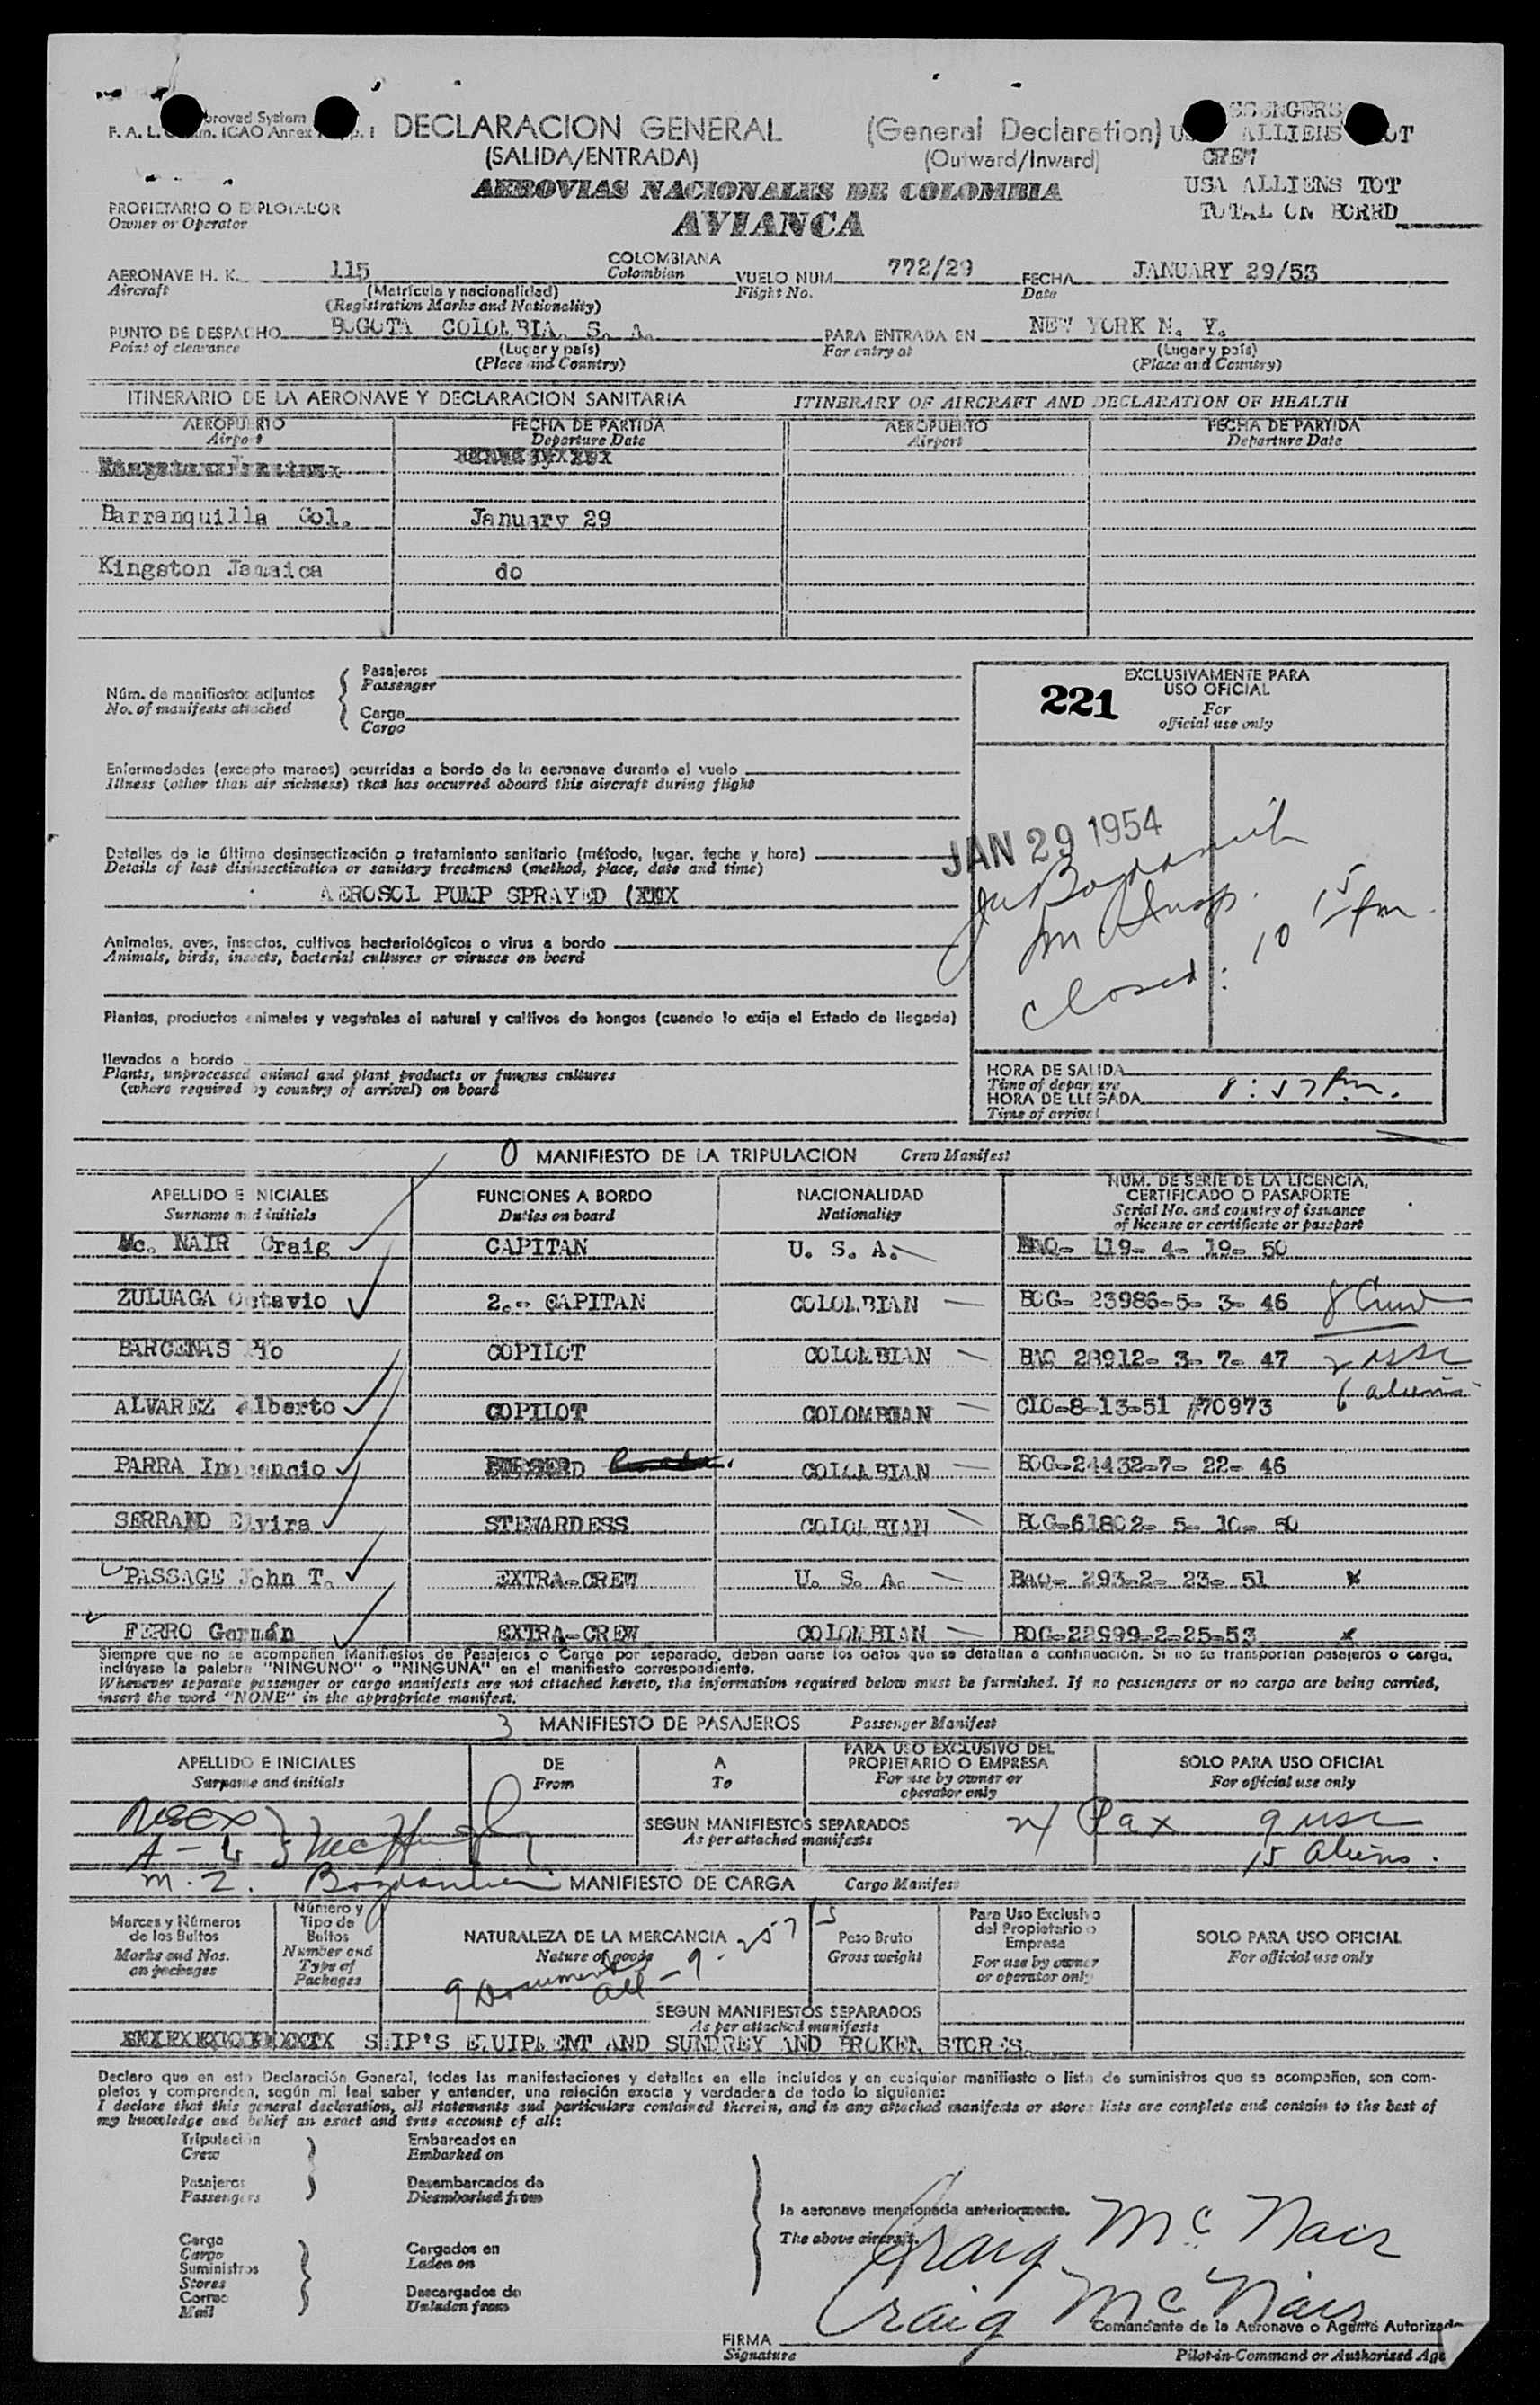 DECLARACION GENERAL (General Declaration)
F. A. L. ICAO Annex
(SALIDA/ENTRADA) (Outward/Inward)
CREW
USA ALLIENS TOT
TOTAL ON BORRD
AEROVIAS NACIONALES DE COLOMBIA
AVIANCA
PROPIETARIO O EXPLOTADOR
Owner or Operator
AERONAVE H. K. 115 COLOMBIANA VUELO NUM. 772/29 FECHA JANUARY 29/53
Aircraft Colombian Flight No. Date
(Matrícula y nacionalidad)
(Registration Marks and Nationality)
PUNTO DE DESPACHO BOGOTA COLOMBIA. S. A. PARA ENTRADA EN NEW YORK N. Y.
Point of clearance (Lugar y país) For entry at (Lugar y país)
(Place and Country) (Place and Country)
ITINERARIO DE LA AERONAVE Y DECLARACION SANITARIA ITINERARY OF AIRCRAFT AND DECLARATION OF HEALTH
AEROPUERTO FECHA DE PARTIDA AEROPUERTO FECHA DE PARTIDA
Airport Departure Date Airport Departure Date
Barranquilla Col. January 29
Kingston Jamaica do
Núm. de manifiestos adjuntos Pasajeros
No. of manifests attached Passenger
Carga
Cargo
EXCLUSIVAMENTE PARA
USO OFICIAL
221
For
official use only
Enfermedades (excepto mareos) ocurridas a bordo de la aeronave durante el vuelo
Illness (other than air sickness) that has occurred aboard this aircraft during flight
JAN 29 1954
Detalles de la última desinsectización o tratamiento sanitario (método, lugar, fecha y hora)
Details of last disinsectization or sanitary treatment (method, place, date and time)
AEROSOL PUMP SPRAYED
Closed: 10 15 pm.
Animales, aves, insectos, cultivos bacteriológicos o virus a bordo
Animals, birds, insects, bacterial cultures or viruses on board
Plantas, productos animales y vegetales al natural y cultivos de hongos (cuando lo exija el Estado de llegada)
llevados a bordo
Plants, unprocessed animal and plant products or fungus cultures
(where required by country of arrival) on board
HORA DE SALIDA
Time of departure
HORA DE LLEGADA 8:57 Pm.
Time of arrival
0 MANIFIESTO DE LA TRIPULACION Crew Manifest
APELLIDO E INICIALES FUNCIONES A BORDO NACIONALIDAD NUM. DE SERIE DE LA LICENCIA, CERTIFICADO O PASAPORTE
Surname and initials Duties on board Nationality Serial No. and country of issuance of license or certificate or passport
Mc. NAIR Craig CAPITAN U. S. A. BAQ- 119- 4- 19- 50
ZULUAGA Octavio 2.- CAPITAN COLOMBIAN BOG- 23986-5- 3- 46 8 Crew
BARCENAS Pio COPILOT COLOMBIAN BAQ 28912- 3- 7- 47 2 usc
ALVAREZ Alberto COPILOT COLOMBIAN CLO-8-13-51 #70973 6 aliens
PARRA Inocencio COLOMBIAN BOG-24432-7- 22- 46
SERRANO Elvira STEWARDESS COLOMBIAN BOG-61802- 5- 10- 50
PASSAGE John T. EXTRA-CREW U. S. A. BAQ- 293-2- 23- 51 x
FERRO Germán EXTRA-CREW COLOMBIAN BOG-22999-2-25-53 x
Siempre que no se acompañen Manifiestos de Pasajeros o Carga por separado, deben darse los datos que se detallan a continuación. Si no se transportan pasajeros o carga,
inclúyase la palabra "NINGUNO" o "NINGUNA" en el manifiesto correspondiente.
Whenever separate passenger or cargo manifests are not attached hereto, the information required below must be furnished. If no passengers or no cargo are being carried,
insert the word "NONE" in the appropriate manifest.
3 MANIFIESTO DE PASAJEROS Passenger Manifest
APELLIDO E INICIALES DE A PARA USO EXCLUSIVO DEL PROPIETARIO O EMPRESA SOLO PARA USO OFICIAL
Surname and initials From To For use by owner or operator only For official use only
SEGUN MANIFIESTOS SEPARADOS 24 Pax 9 usc
As per attached manifests 15 aliens.
A - 4
MANIFIESTO DE CARGA Cargo Manifest
Marcas y Números de los Bultos Número y Tipo de Bultos NATURALEZA DE LA MERCANCIA Peso Bruto Para Uso Exclusivo del Propietario o Empresa SOLO PARA USO OFICIAL
Marks and Nos. on packages Number and Type of Packages Nature of goods Gross weight For use by owner or operator only For official use only
9 Documents
SEGUN MANIFIESTOS SEPARADOS
As per attached manifests
SHIP'S EQUIPMENT AND SUNDREY AND BROKEN STORES.
Declaro que en esta Declaración General, todas las manifestaciones y detalles en ella incluídos y en cualquier manifiesto o lista de suministros que se acompañen, son com-
pletos y comprenden, según mi leal saber y entender, una relación exacta y verdadera de todo lo siguiente:
I declare that this general declaration, all statements and particulars contained therein, and in any attached manifests or stores lists are complete and contain to the best of
my knowledge and belief an exact and true account of all:
Tripulación Embarcados en
Crew Embarked on
Pasajeros Desembarcados de
Passengers Disembarked from
la aeronave mencionada anteriormente.
The above aircraft.
Carga
Cargo Cargados en
Suministros Laden on
Stores
Correo Descargados de
Mail Unladen from
Craig McNair
Craig McNair
FIRMA Comandante de la Aeronave o Agente Autorizado
Signature Pilot-in-Command or Authorised Age